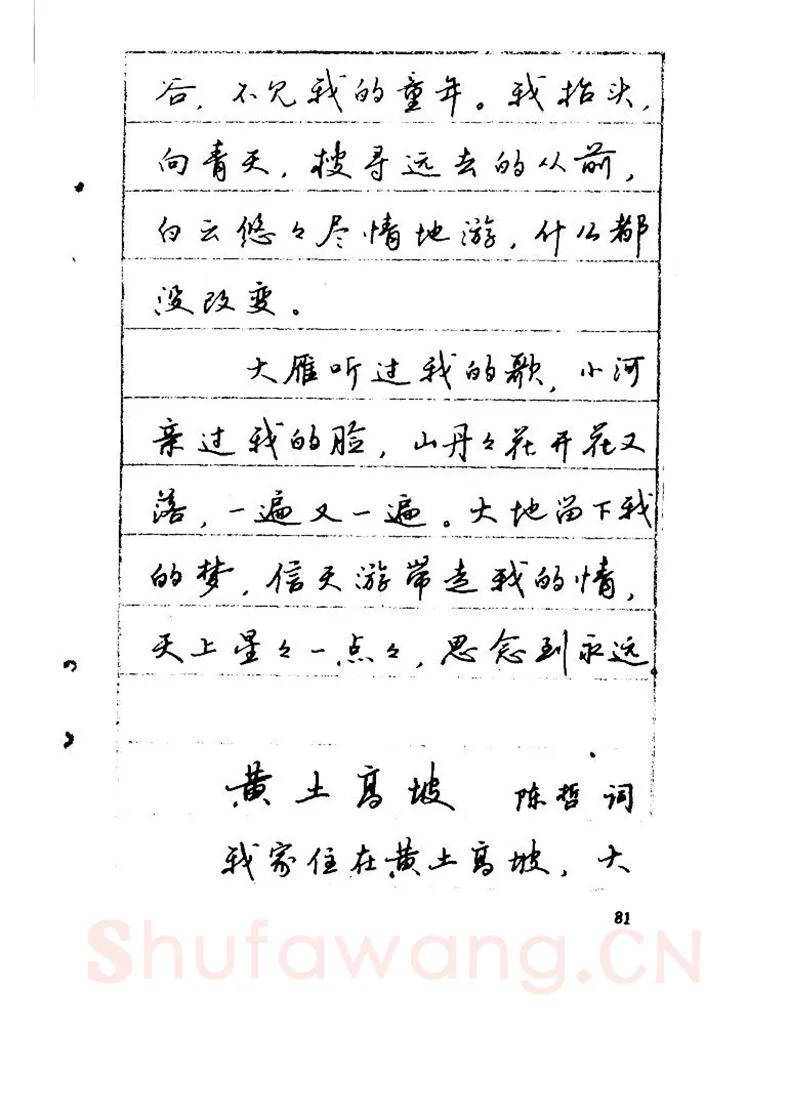 谷，不见我的童年。我抬头，
向青天，搜寻远去的从前，
白云悠々尽情地游，什么都
没改变。
大雁听过我的歌，小河
亲过我的脸，山丹々花开花又
落，一遍又一遍。大地留下我
的梦，信天游带走我的情，
天上星々一点々，思念到永远
黄土高坡 陈哲 词
我家住在黄土高坡，大
81
Shufawang.CN